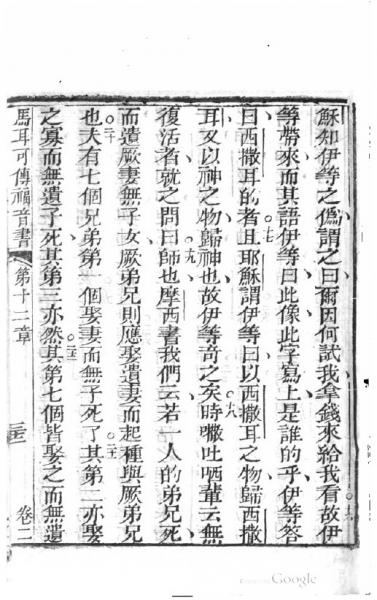 穌知伊等之偽謂之曰爾因何試我拿錢來給我看故伊
等帶來而其語伊等曰此像此字寫上是誰的乎伊等答
曰西撒耳的者且耶穌謂伊等曰以西撒耳之物歸西撒
耳又以神之物歸神也故伊等奇之矣時吐唒輩云無
復活者就之問曰師也摩西書我們云若一人的弟兄死
而遺厥妻無子女厥弟兄則應娶遺妻而起種與厥弟兄
也夫有七個兄弟第一個娶妻而無子死了其第二亦娶
之寡而無遺子死其第三亦然其第七個皆娶之而無遺
馬耳可傳福音書 第十二章 卷二
Google